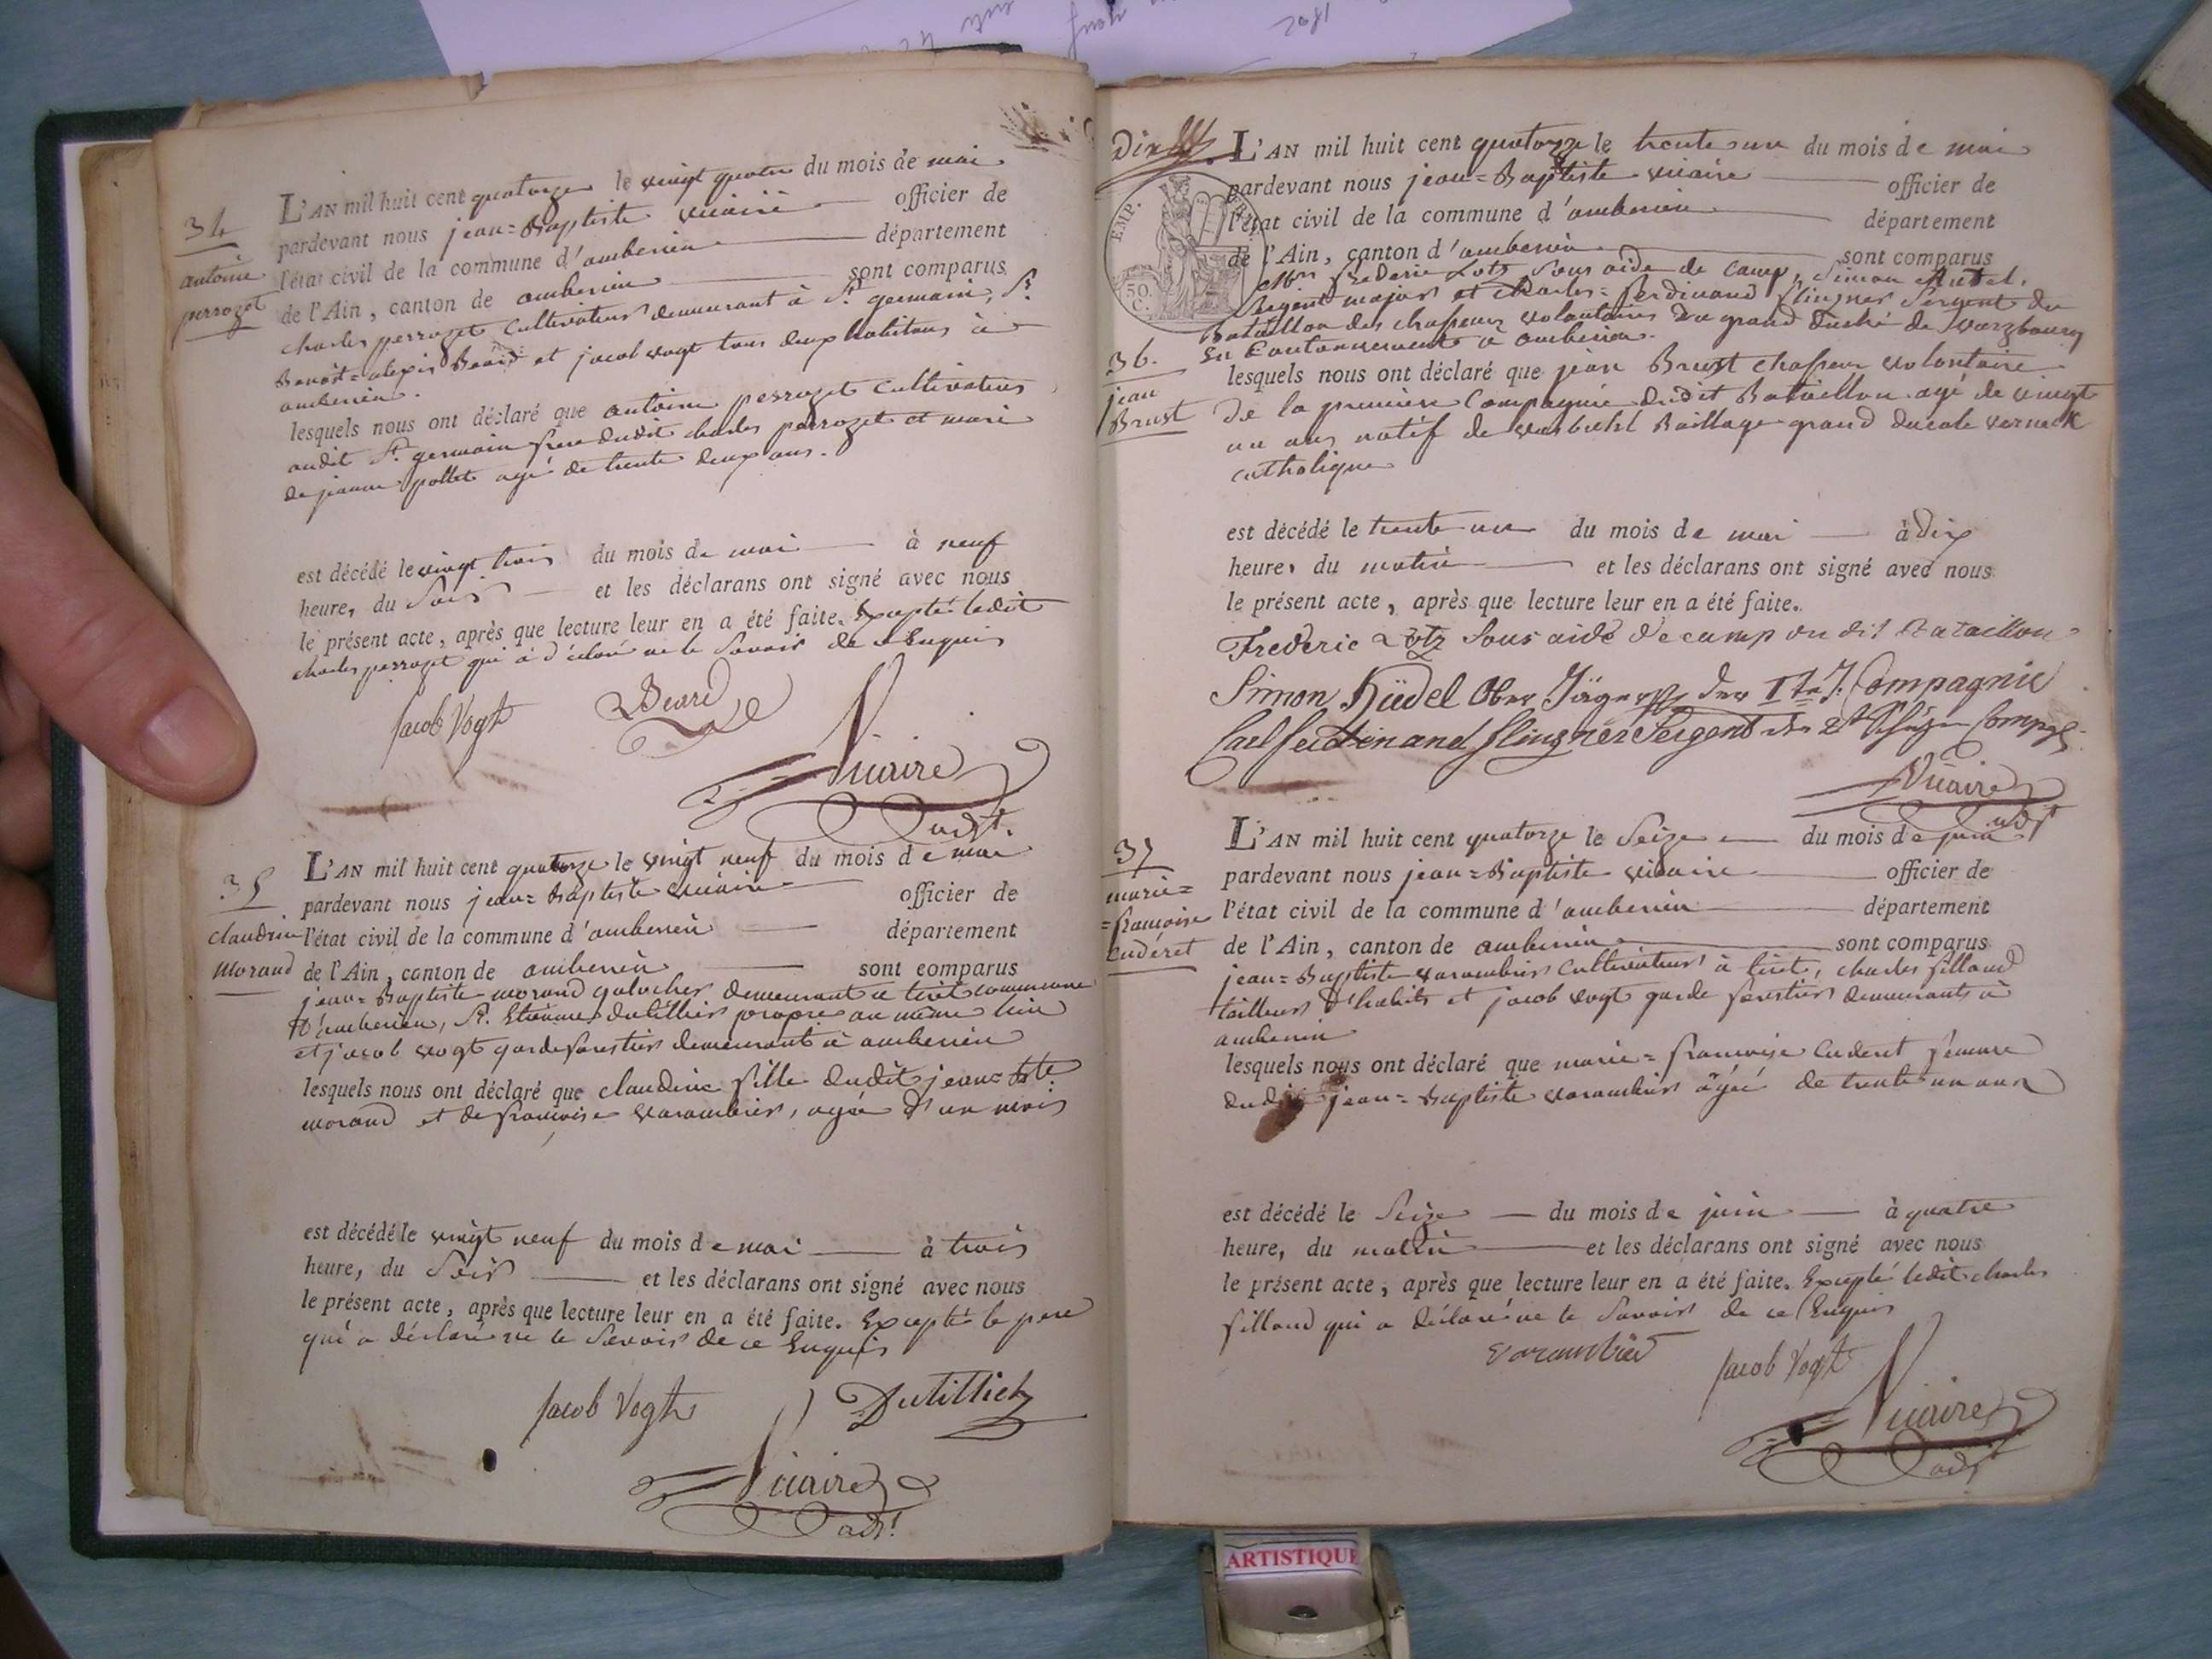 34
antoine
perrozet
L'AN mil huit cent quatorze le vingt quatre du mois de mai
pardevant nous jean=Baptiste vicaire officier de
l'état civil de la commune d'amberieu département
de l'Ain, canton de amberieu sont comparus
charles perrozet cultivateur demeurant à St. germain, Sr.
Benoit=alexis Beard et jacob vogt tous deux habitans à
amberieu.
lesquels nous ont déclaré que antoine perrozet cultivateur
audit St. germain frere dudit charles perrozet et mari
de jeanne pollet agé de trente deux ans.
est décédé le vingt trois du mois de mai à neuf
heure, du soir et les déclarans ont signé avec nous
le présent acte, après que lecture leur en a été faite. Excepté ledit
charles perrozet qui a déclaré ne le savoir de ce Enquis
Jacob Vogt Beard
Vicaire
adjt.
35
claudine
Morand
L'AN mil huit cent quatorze le vingt neuf du mois de mai
pardevant nous jean=Baptiste vicaire officier de
l'état civil de la commune d'amberieu département
de l'Ain, canton de amberieu sont comparus
jean=Baptiste morand galocher demeurant a tiret commune
d'amberieu, Sr. Etienne dutillier propre. au même lieu
et jacob vogt garde forestier demeurant à amberieu
lesquels nous ont déclaré que claudine fille dudit jean=Bte
morand et de francoise varambier, agée d'un mois
est décédé le vingt neuf du mois de mai à trois
heure, du soir et les déclarans ont signé avec nous
le présent acte, après que lecture leur en a été faite. Excepté le pere
qui a déclaré ne le savoir de ce Enquis
Jacob Vogt Dutilliet
Vicaire
adjt
Dix
L'AN mil huit cent quatorze le trente un du mois de mai
pardevant nous jean=Baptiste vicaire officier de
l'état civil de la commune d'amberieu département
de l'Ain, canton d'amberieu sont comparus
EMP.
50.
C.
Mrs. frederic Lotz sous aide de camp, Simon
sergent major et charles=ferdinand flingner sergent du
Bataillon des chasseurs volontaires du grand duché de Wurzbourg
En Cantonnement a amberieu.
36.
jean
Brust
lesquels nous ont déclaré que jean Brust chasseur volontaire
de la premiere Compagnie dudit Bataillon agé de vingt
un ans natif de Baillage grand ducale verneck
catholique
est décédé le trente un du mois de mai à dix
heure, du matin et les déclarans ont signé avec nous
le présent acte, après que lecture leur en a été faite.
Frederic Lotz Sous aide de camp du dit Bataillon
Simon Hüdel Ober Jäger der 1te J. Compagnie
Carl ferdinand flingner Sergent
Vicaire
adjt
37
marie=
=francoise
Cuderet
L'AN mil huit cent quatorze le seize du mois de juin
pardevant nous jean=Baptiste vicaire officier de
l'état civil de la commune d'amberieu département
de l'Ain, canton de amberieu sont comparus
jean=Baptiste varambier cultivateur à tiret, charles filloud
tailleur d'habits et jacob vogt garde forestier demeurants à
amberieu
lesquels nous ont déclaré que marie=francoise Cuderet femme
dudit jean=Baptiste varambier agée de trente un ans
est décédé le seize du mois de juin à quatre
heure, du matin et les déclarans ont signé avec nous
le présent acte, après que lecture leur en a été faite. Excepté ledit charles
filloud qui a déclaré ne le savoir de ce Enquis
varambier Jacob Vogt
Vicaire
adjt
ARTISTIQUE